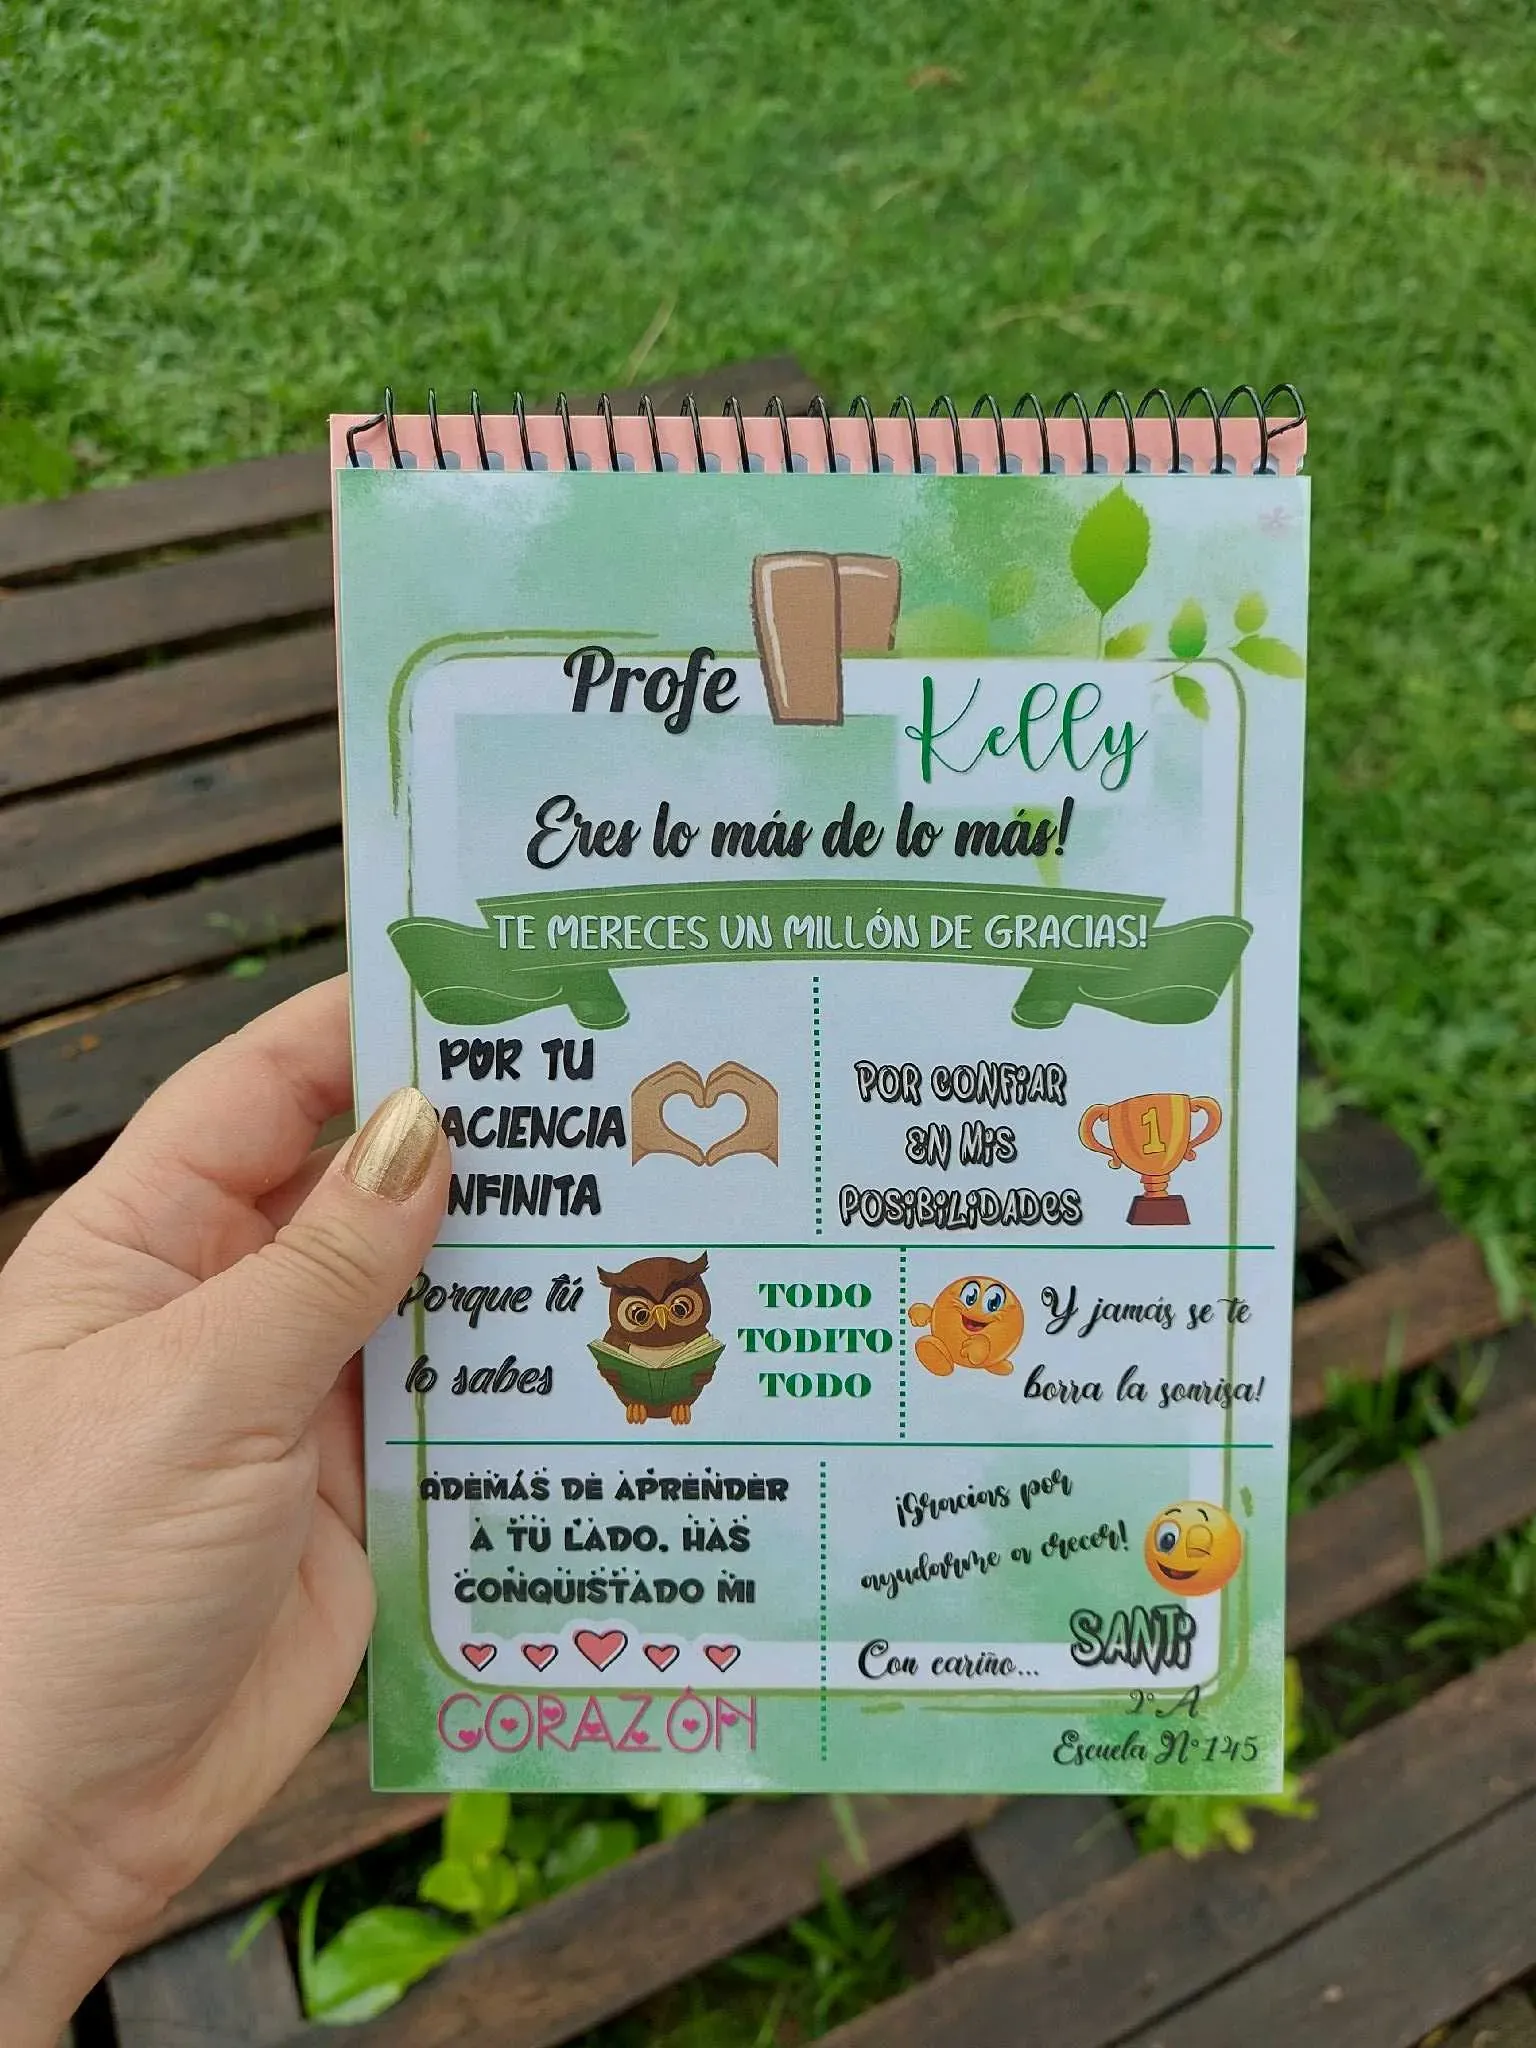 Profe
Kelly
Eres lo más de lo más!
TE MERECES UN MILLÓN DE GRACIAS!
POR TU
ACIENCIA
NFINITA
POR CONFIAR
EN MIS
POSIBILIDADES
1
Porque tú
lo sabes
TODO
TODITO
TODO
Y jamás se te
borra la sonrisa!
ADEMÁS DE APRENDER
A TU LADO. HAS
CONQUISTADO MI
CORAZÓN
¡Gracias por
ayudarme a crecer!
Con cariño...
SANTI
2° A
Escuela N° 145